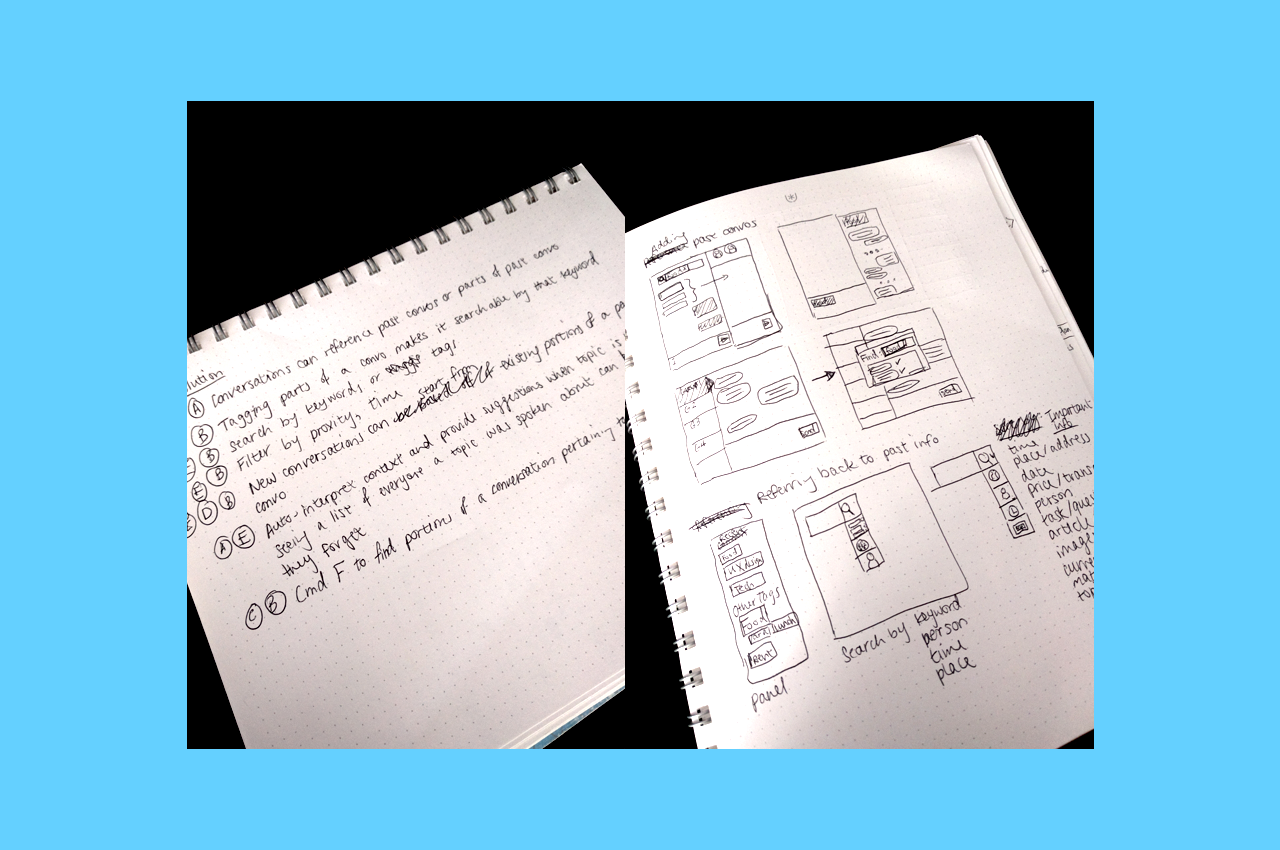 lution
A Conversations can reference past convos or parts of past convo
B Tagging parts of a convo makes it searchable by that keyword
B search by keyword, or tag
E B Filter by proxity, time
D B New conversations can start from existing portions of a
convo
A E Auto-interpret context and provide suggestions when topic is
seeing a list of everyone a topic was spoken about can
they forget
C B Cmd F to find portions of a conversation pertaining
Adding
past convos
Find:
Referring back to past info
Food
UX design
Tech
Other Tags
Food
lunch
Rent
panel
Search by keyword
person
time
place
Important
info
time
place/address
date
price/trans
person
task/que
article
image